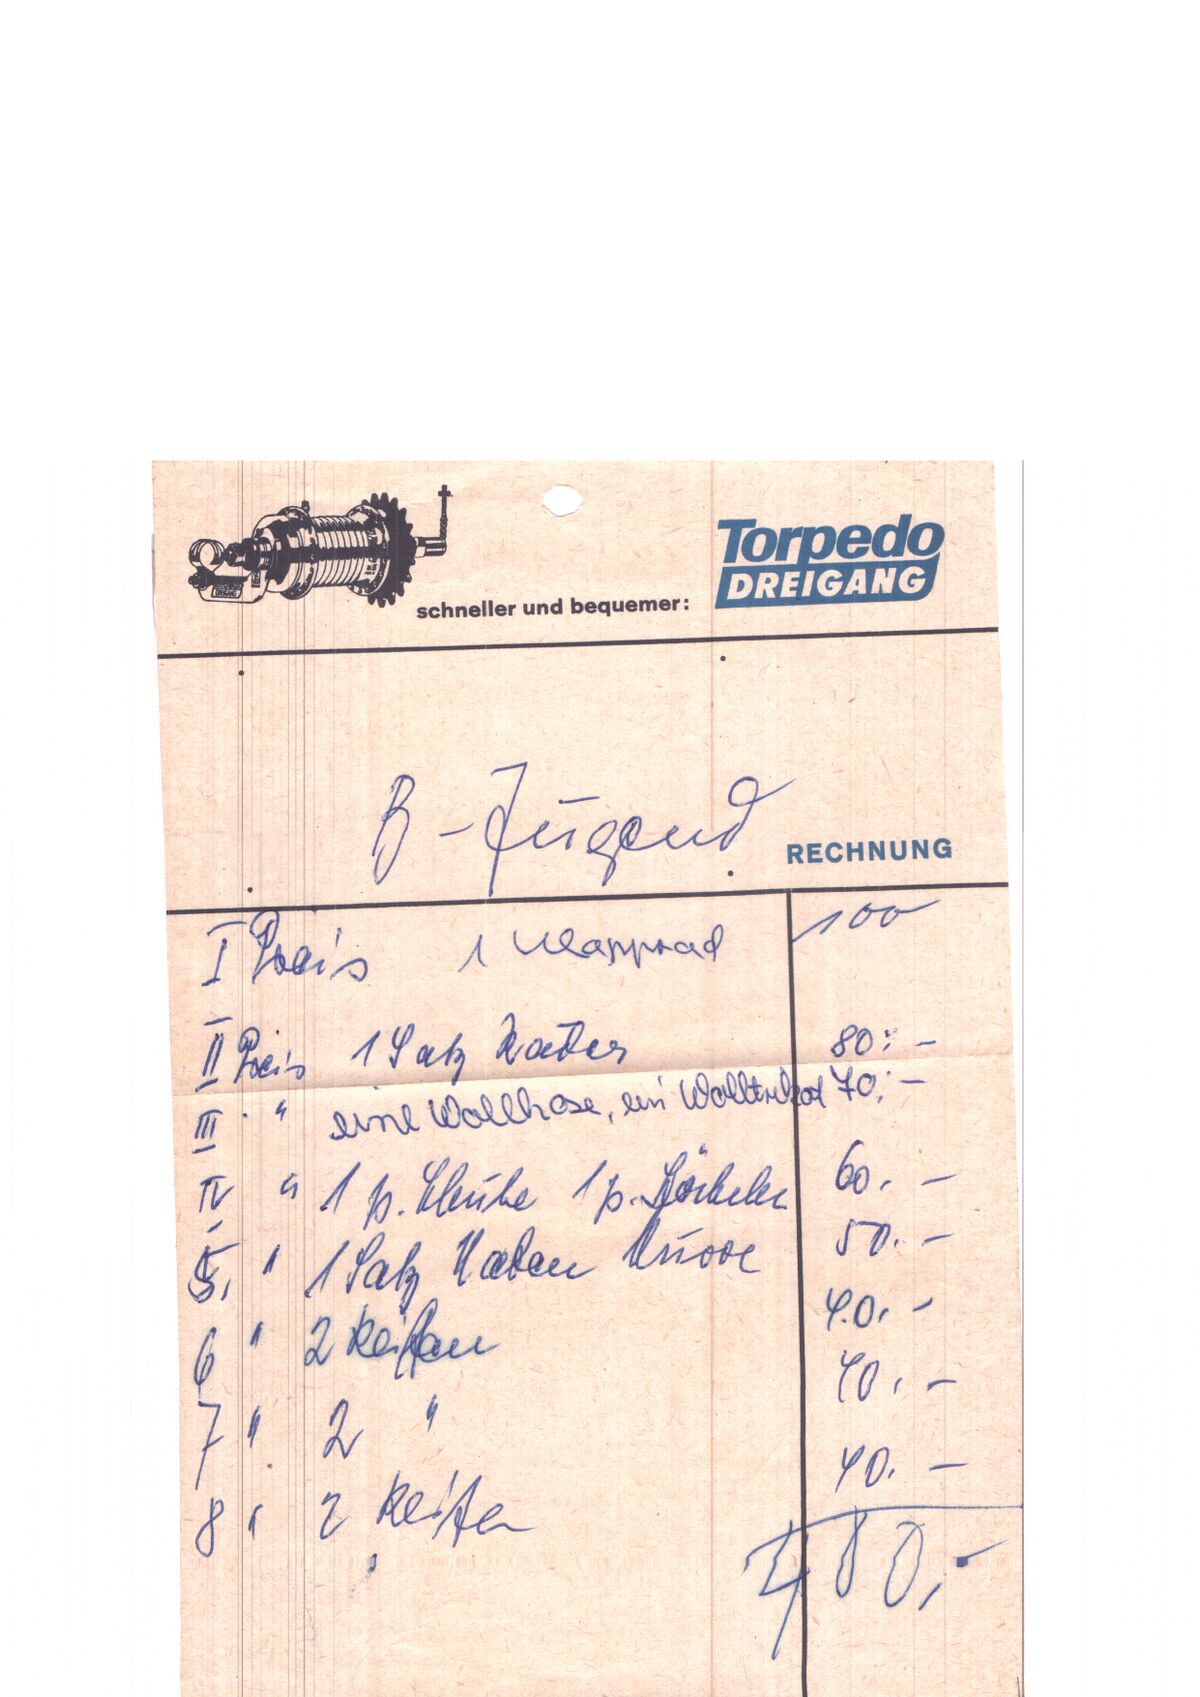 schneller und bequemer:
Torpedo
DREIGANG
B - Jugend
RECHNUNG
I Preis 1 Klapprad 100
II Preis 1 Satz Räder 80.-
III " " eine Wollhose, ein Wolltrikot 70.-
IV " 1 p. Schuhe 1 p. Söckchen 60.-
5. " 1 Satz Naben 50.-
6 " 2 Reifen 40.-
7 " 2 " 40.-
8 " 2 Reifen 40.-
480.-